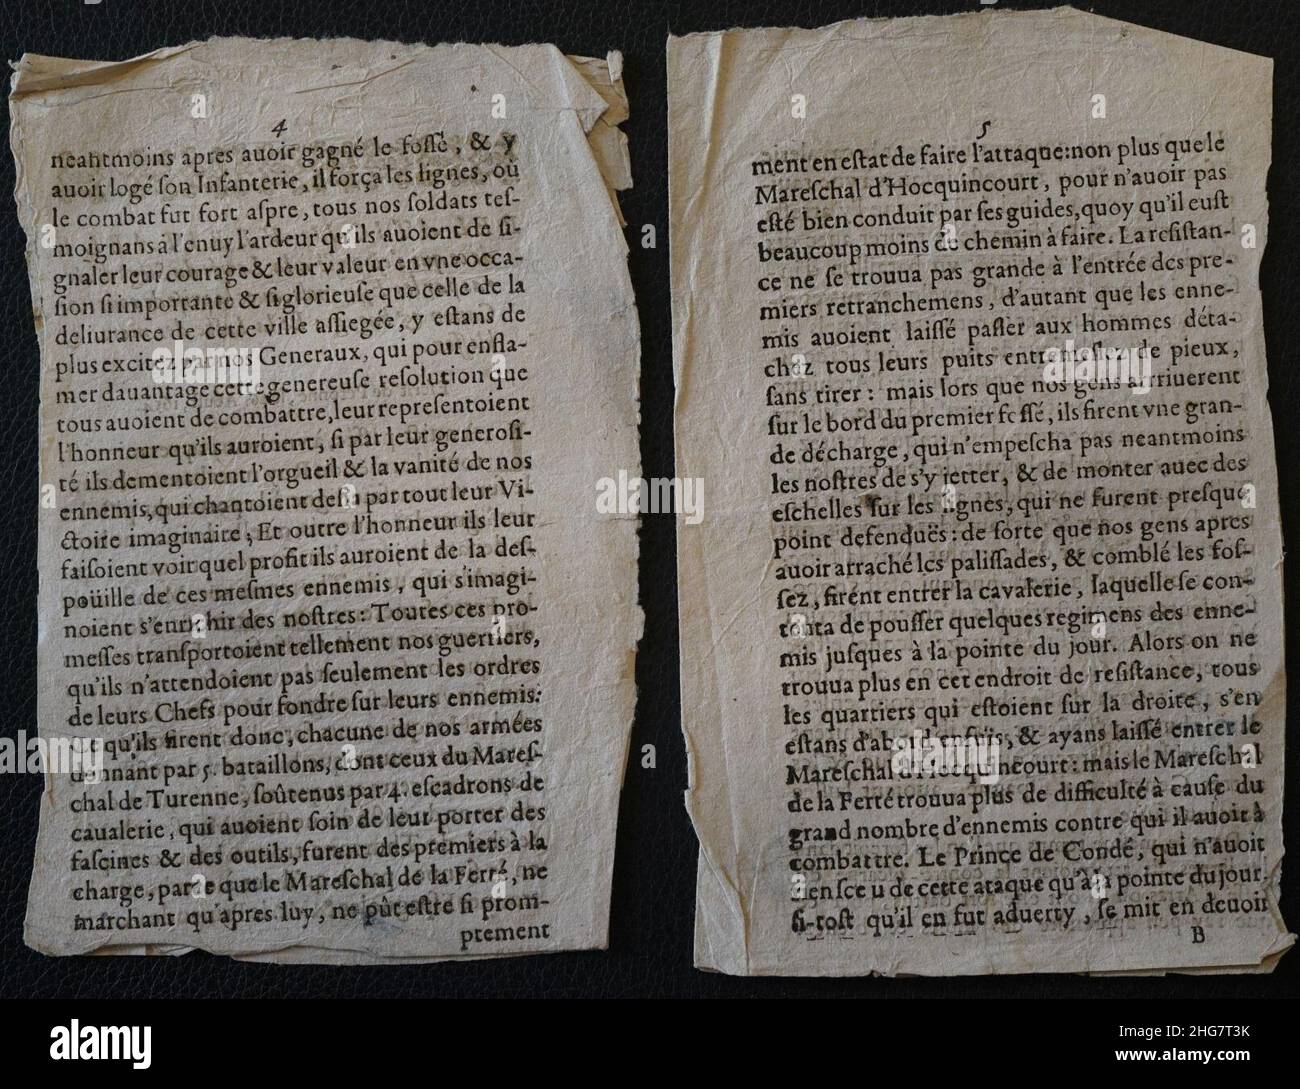 4
neantmoins apres auoir gagné le foſſé, & y
auoir logé ſon Infanterie, il força les lignes, où
le combat fut fort aſpre, tous nos ſoldats teſ-
moignans à l'enuy l'ardeur qu'ils auoient de ſi-
gnaler leur courage & leur valeur en vne occa-
ſion ſi importante & ſi glorieuſe que celle de la
deliurance de cette ville aſſiegée, y eſtans de
plus excitez par nos Generaux, qui pour enfla-
mer dauantage cette genereuſe reſolution que
tous auoient de combattre, leur repreſentoient
l'honneur qu'ils auroient, ſi par leur generoſi-
té ils dementoient l'orgueil & la vanité de nos
ennemis, qui chantoient deſia par tout leur Vi-
ctoire imaginaire; Et outre l'honneur ils leur
faiſoient voir quel profit ils auroient de la deſ-
poüille de ces meſmes ennemis, qui s'imagi-
noient s'enrichir des noſtres: Toutes ces pro-
meſſes tranſportoient tellement nos guerriers,
qu'ils n'attendoient pas ſeulement les ordres
de leurs Chefs pour fondre ſur leurs ennemis:
Ce qu'ils firent donc, chacune de nos armées
donnant par 5. bataillons, dont ceux du Mareſ-
chal de Turenne, ſoûtenus par 4. eſcadrons de
caualerie, qui auoient ſoin de leur porter des
faſcines & des outils, furent des premiers à la
charge, parce que le Mareſchal de la Ferré, ne
marchant qu'apres luy, ne pût eſtre ſi prom-
ptement
5
ment en eſtat de faire l'attaque: non plus que le
Mareſchal d'Hocquincourt, pour n'auoir pas
eſté bien conduit par ſes guides, quoy qu'il euſt
beaucoup moins de chemin à faire. La reſiſtan-
ce ne ſe trouua pas grande à l'entrée des pre-
miers retranchemens, d'autant que les enne-
mis auoient laiſſé paſſer aux hommes déta-
chez tous leurs puits entremeſlez de pieux,
ſans tirer: mais lors que nos gens arrriuerent
ſur le bord du premier foſſé, ils firent vne gran-
de décharge, qui n'empeſcha pas neantmoins
les noſtres de s'y jetter, & de monter auec des
eſchelles ſur les lignes, qui ne furent preſque
point defenduës: de ſorte que nos gens apres
auoir arraché les paliſſades, & comblé les foſ-
ſez, firent entrer la cavalerie, laquelle ſe con-
tenta de pouſſer quelques regimens des enne-
mis juſques à la pointe du jour. Alors on ne
trouua plus en cet endroit de reſiſtance, tous
les quartiers qui eſtoient ſur la droite, s'en
eſtans d'abord enfuis, & ayans laiſſé entrer le
Mareſchal d'Hocquincourt: mais le Mareſchal
de la Ferté trouua plus de difficulté à cauſe du
grand nombre d'ennemis contre qui il auoit à
combattre. Le Prince de Condé, qui n'auoit
rien ſceu de cette ataque qu'à la pointe du jour,
ſi-toſt qu'il en fut aduerty, ſe mit en deuoir
B
alamy
Image ID: 2HG7T3K
www.alamy.com